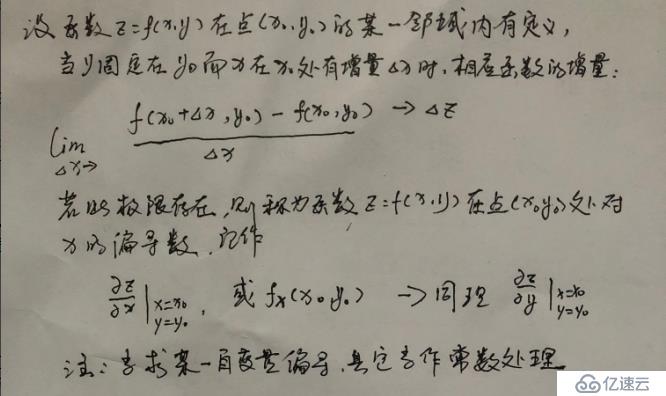 设函数 z=f(x,y) 在点(x₀,y₀) 的某一邻域内有定义,
当y固定在y₀而x在x₀处有增量Δx时,相应函数的增量:
lim Δx→ f(x₀+Δx,y₀) − f(x₀,y₀) / Δx → Δz
若此极限存在,则称为函数 z=f(x,y) 在点(x₀,y₀)处对
x的偏导数,记作
∂z/∂x |x=x₀ y=y₀, 或 fx(x₀,y₀) → 同理 ∂z/∂y |x=x₀ y=y₀
注:求某一自变量偏导,其它作常数处理
亿速云